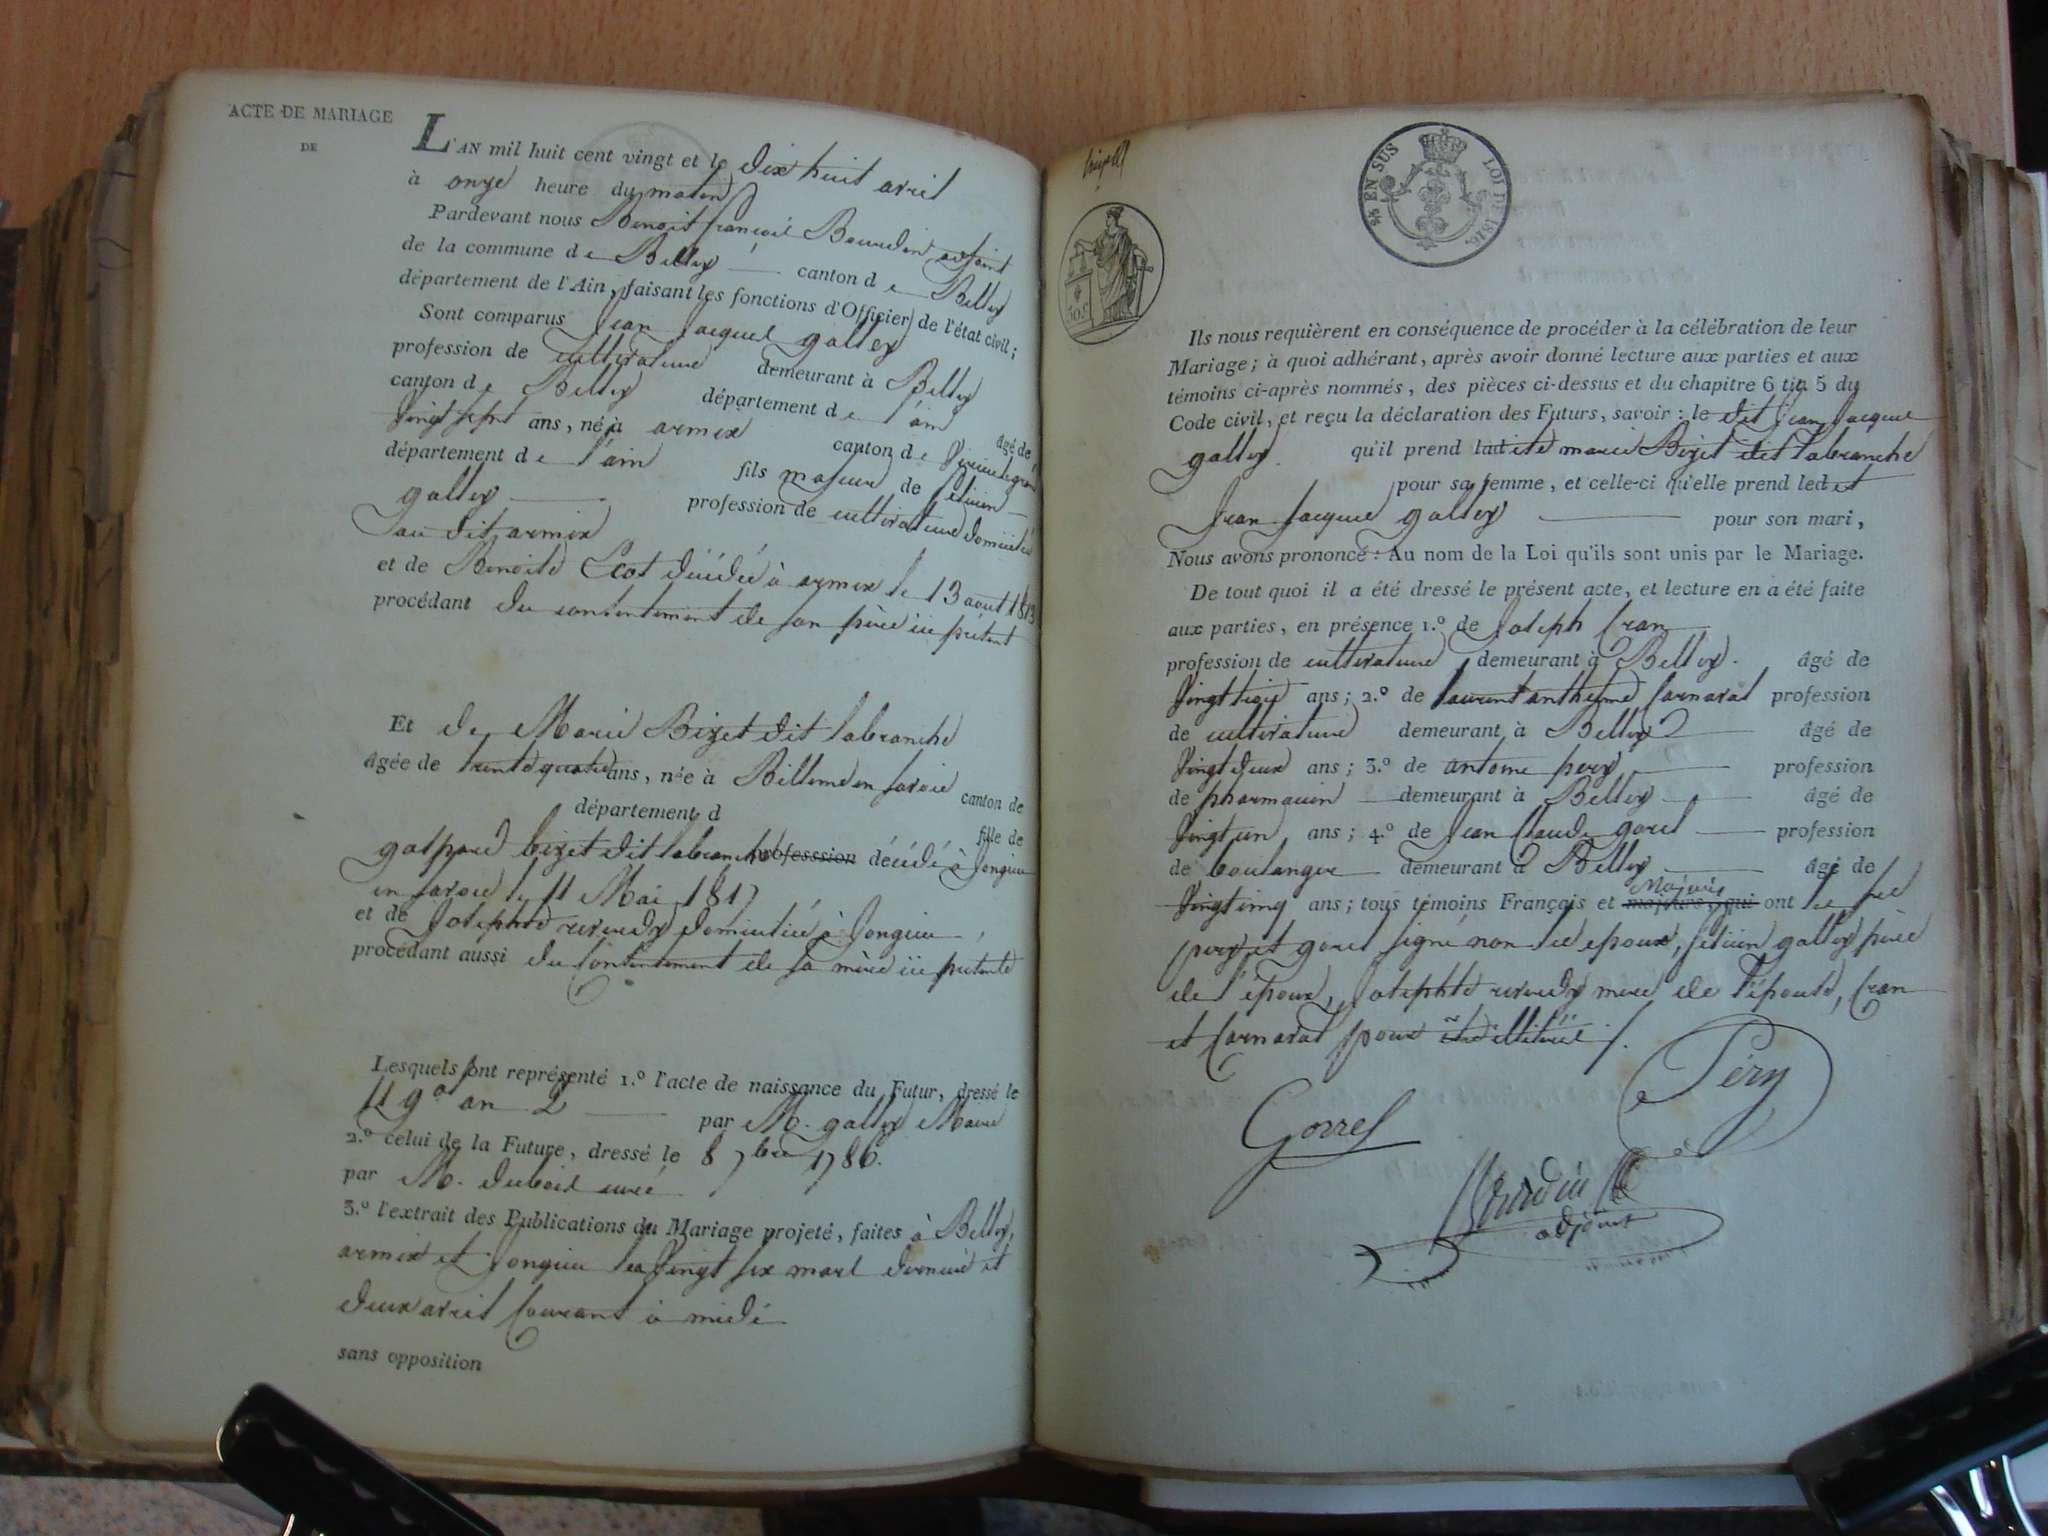 ACTE DE MARIAGE
DE
L'AN mil huit cent vingt et le dix huit avril
à onze heure du matin
Pardevant nous Benoit françois Bourdin adjoint
de la commune de Belley canton de Belley
département de l'Ain, faisant les fonctions d'Officier de l'état civil;
Sont comparus Jean Jacques galley
profession de cultivateur demeurant à Belley
canton de Belley département de l'ain âgé de
Vingt sept ans, né à armix canton de
département de l'ain fils majeur de felicien
galley profession de cultivateur domicilié
au dit armix
et de Benoite Ecot décédée à armix le 13 aout 1813
procédant du consentement de son père ici présent
Et de Marie Bizet dit labranche
âgée de trente quatre ans, née à Billieme en savoie canton de
département d fille de
gaspard bizet dit labranche profession décédé à Jongieux
en savoie le 11 Mai 1817
et de Josephte reverdy domiciliée à Jongieux,
procédant aussi du consentement de sa mère ici présente
Lesquels ont représenté 1.º l'acte de naissance du Futur, dressé le
11 an 2 par M. galley Maire
2.º celui de la Future, dressé le 8 7bre 1786.
par M. dubois curé
3.º l'extrait des Publications du Mariage projeté, faites à Belley,
armix et Jongieux les Vingt six mars dernier et
deux avril courant à midi
sans opposition
EN SUS LOI DE 1816.
50 c
Ils nous requièrent en conséquence de procéder à la célébration de leur
Mariage; à quoi adhérant, après avoir donné lecture aux parties et aux
témoins ci-après nommés, des pièces ci-dessus et du chapitre 6 tit. 5 du
Code civil, et reçu la déclaration des Futurs, savoir: le dit Jean Jacques
galley qu'il prend ladite marie Bizet dit labranche
pour sa femme, et celle-ci qu'elle prend ledit
Jean Jacques galley pour son mari,
Nous avons prononcé: Au nom de la Loi qu'ils sont unis par le Mariage.
De tout quoi il a été dressé le présent acte, et lecture en a été faite
aux parties, en présence 1.º de Joseph Cran
profession de cultivateur demeurant à Belley. âgé de
Vingt trois ans; 2.º de laurent anthelme Carnaval profession
de cultivateur demeurant à Belley âgé de
Vingt deux ans; 3.º de antoine pery profession
de pharmacien demeurant à Belley âgé de
Vingt un ans; 4.º de Jean Claude gorel profession
de boulanger demeurant à Belley âgé de
Vingt cinq ans; tous témoins Français et majeurs, qui Majeurs ont
pery et gorel signé non les epoux, felicien galley père
de l'époux, Josephte reverdy mere de l'épouse, Cran
et Carnaval pour être illitérés /.
Péry
Gorrel
Bourdin
adjoint